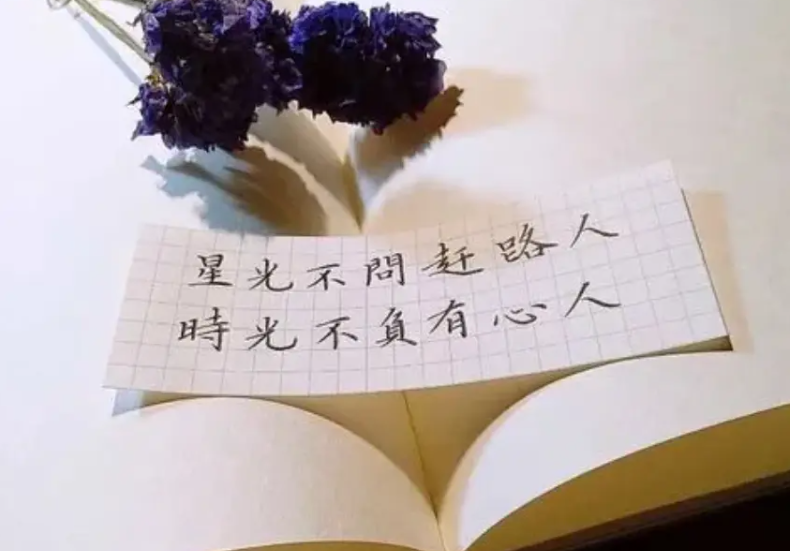 星光不問赶路人
時光不負有心人